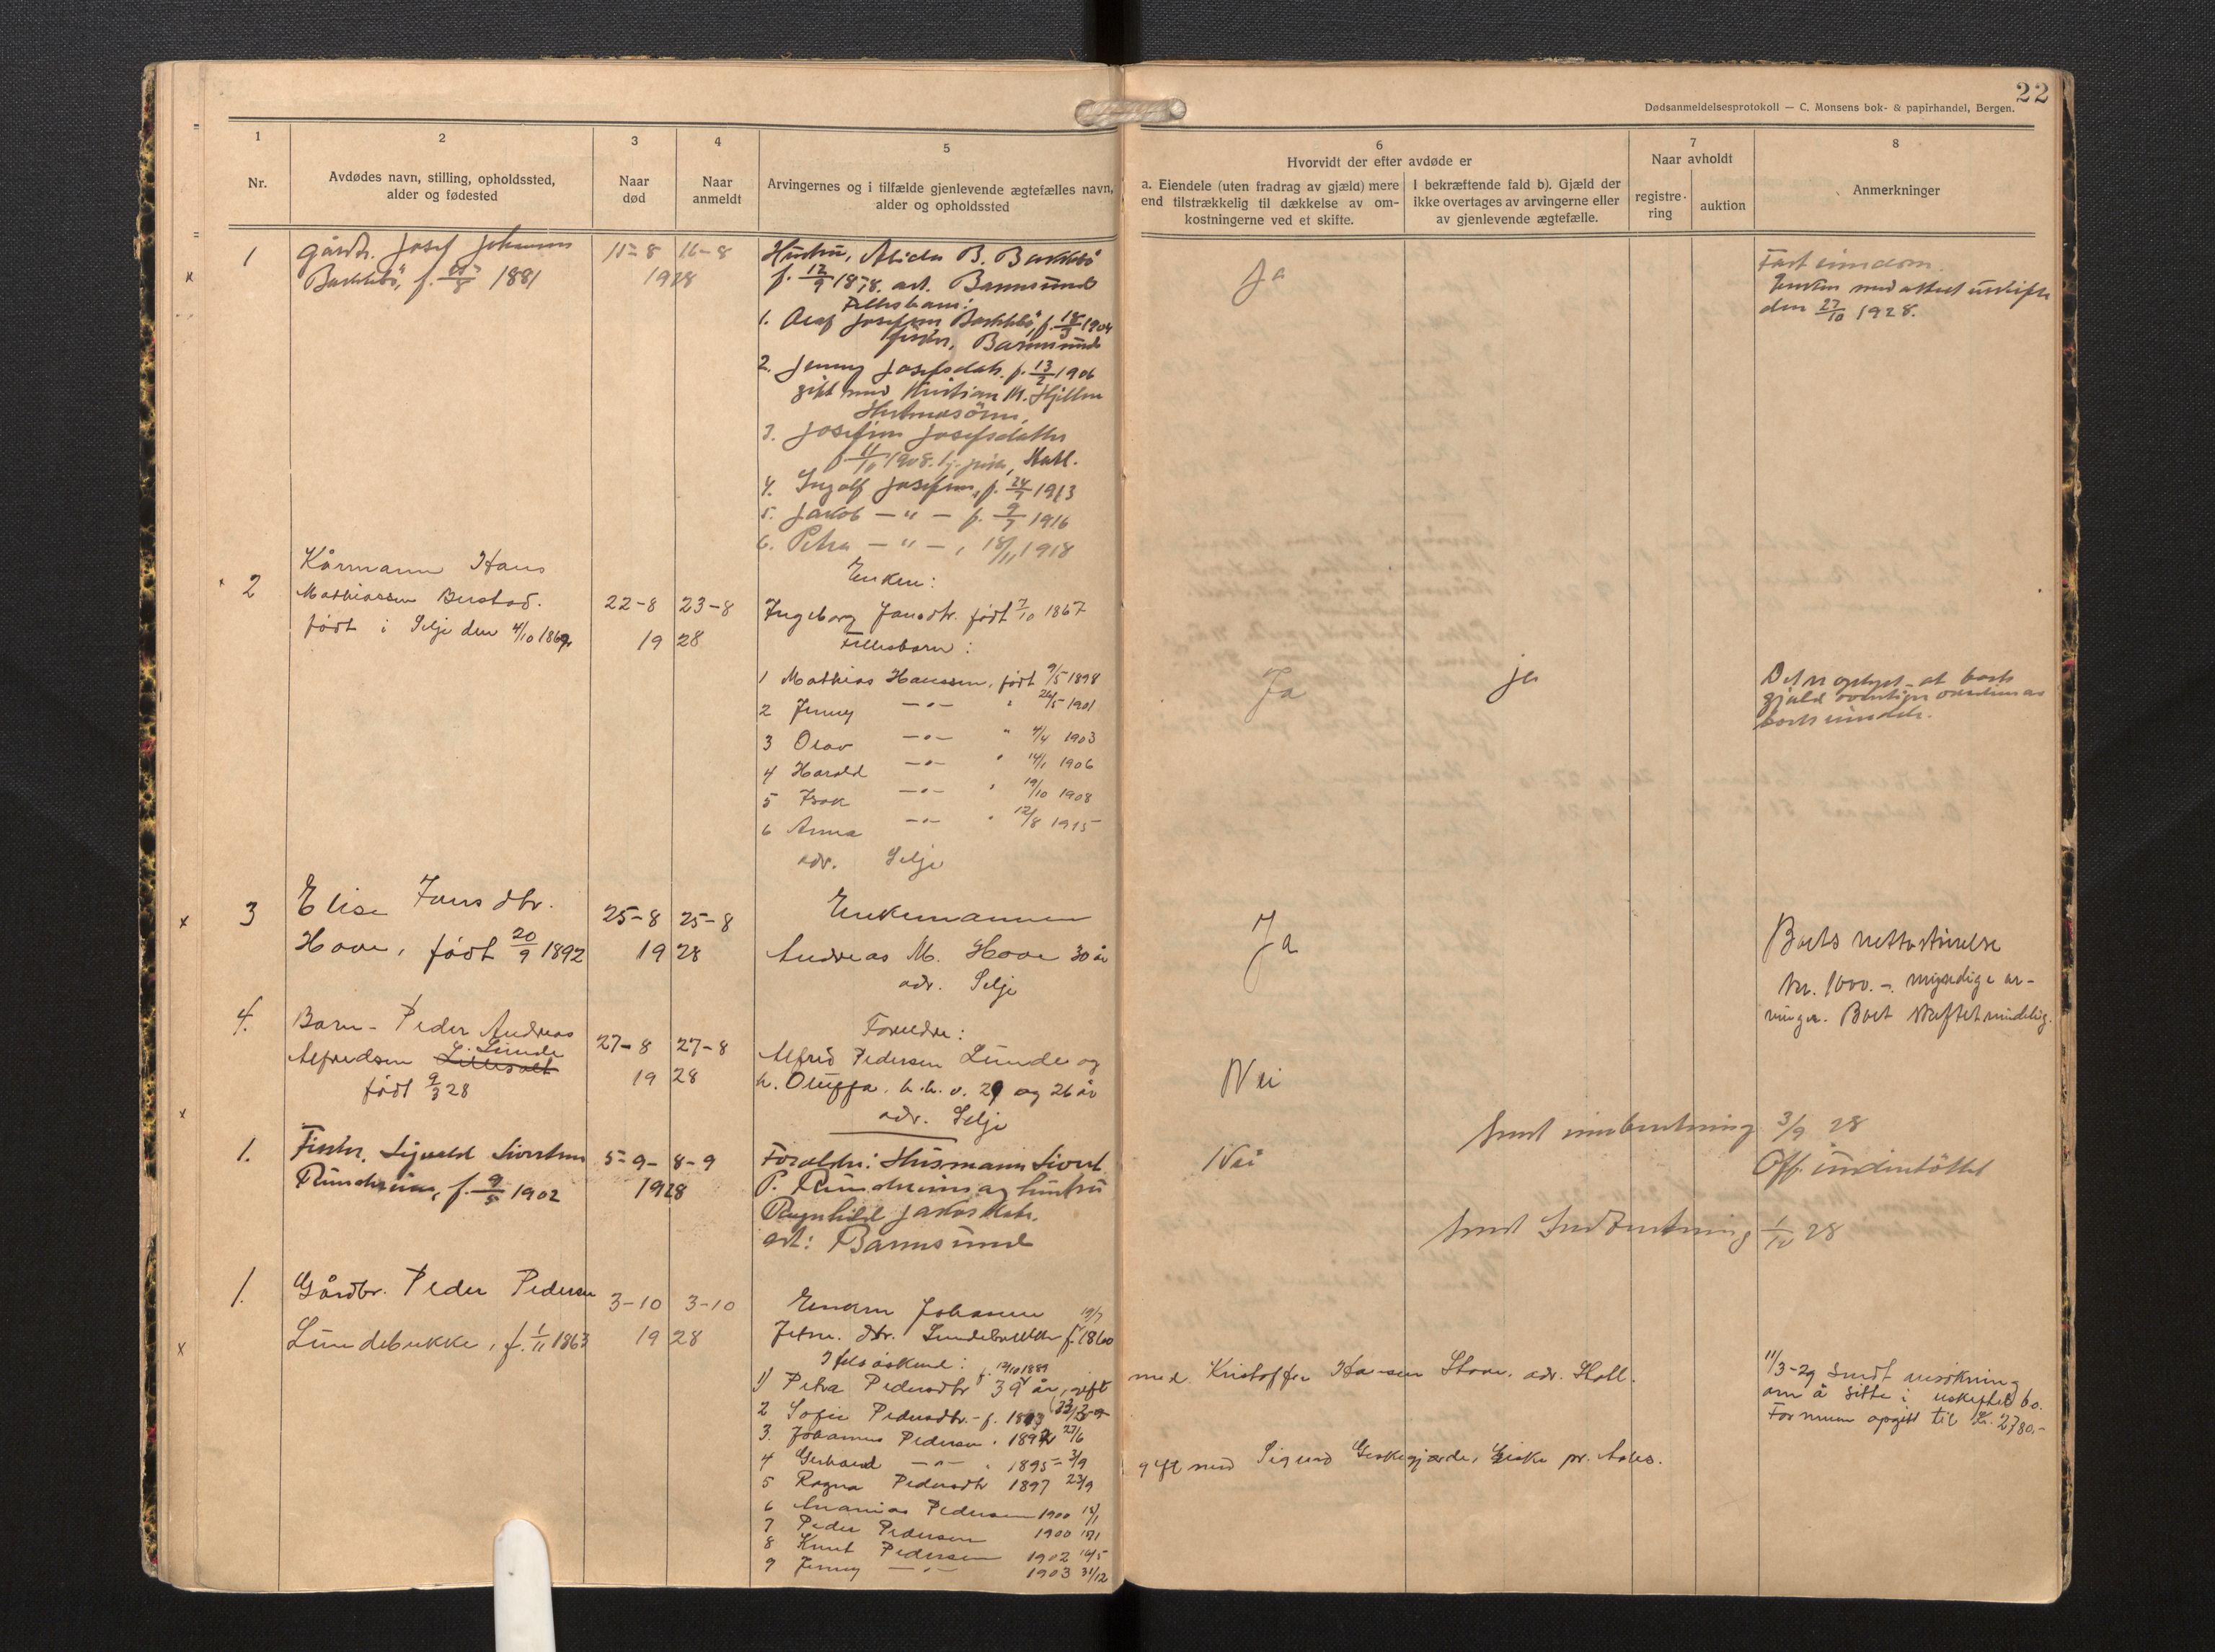 22
Dødsanmeldelsesprotokoll — C. Monsens bok- & papirhandel, Bergen.
1
Nr.
2
Avdødes navn, stilling, opholdssted,
alder og fødested
3
Naar
død
4
Naar
anmeldt
5
Arvingernes og i tilfælde gjenlevende ægtefælles navn,
alder og opholdssted
6
Hvorvidt der efter avdøde er
a. Eiendele (uten fradrag av gjæld) mere
end tilstrækkelig til dækkelse av om-
kostningerne ved et skifte.
I bekræftende fald b). Gjæld der
ikke overtages av arvingerne eller
av gjenlevende ægtefælle.
7
Naar avholdt
registre-
ring
auktion
8
Anmerkninger
1
Gårdbr. Josef Johansen
f. 1881
15-8 16-8
1928
Hustru, B.
f. 12/9 1878. adr. Barmsund
Fellesbarn:
1. Olaf Josefsen f. 18/3 1904
fisker, Barmsund
2. Jenny Josefsdatr. f. 13/2 1906
gift med Kristian M.
3. Josefine Josefsdatter
1908. Hatl.
4. Ingolf Josefsen, f. 24/7 1913
5. Jakob — " — f. 9/7 1916
6. Petra — " — , 18/11 1918
Ja
Fast eiendom.
den 27/10 1928.
2
Kårmann Hans
Mathiassen Berstad.
født i Selje den 4/10 1869
22-8 23-8
1928
Enken:
Ingeborg Jansdtr. født 7/10 1867
Fellesbarn:
1 Mathias Hanssen, født 9/5 1898
2 Jenny —"— " 26/5 1901
3 Olav —"— " 4/4 1903
4 Harald —"— " 14/1 1906
5 Isak —"— " 19/10 1908
6 Anna —"— " 12/8 1915
adr. Selje
Ja
ja
Det er oplyst at boets
gjæld
3
Elise Jansdtr.
Hove, født 20/9 1892
25-8 25-8
1928
Enkemannen
Andreas M. Hove 30 år
adr. Selje
Ja
Boets nettostørrelse
kr. 1000.-. myndige ar-
vinger. Boet skiftet mindelig.
4.
Barn - Peder Andreas
Alfredsen L. Lunde
født 9/3 28
27-8 27-8
1928
Foreldre:
Alfred Pedersen Lunde og
h. Oluffa. h.h.v. 29 og 26 år
adr. Selje
Nei
Sendt innberetning 3/9 28
1.
Fisker, Sigvald Sivertsen
Rundereim, f. 9/5 1902
5-9- 8-9
1928
Foreldre: Husmann Sivert
P. Rundereim og hustru
Ragnhild Jakobsdatr.
adr: Barmsund
Nei
Off. understøttet
Sendt Indberetning 1/10 28
1.
Gårdbr. Peder Pedersen
Lundebrekke, f. 1/11 1863
3-10 3-10
1928
Enken Johanne
Jetm. dtr. Lundebrekke f. 19/7 1860
Felesøskend:
f. 12/10 1889
1) Petra Pedersdtr 39 år, gift
med Kristoffer Hansen Stove, adr. Hatl.
2 Sofie Pedersdtr. - f. 1893
3. Johannes Pedersen " 1894 23/6
4 Gerhard —"— " 1895 - 3/9
5 Ragna Pedersdtr 1897 23/9
gift med Sigurd Geskegjerde, Giske pr. Aales.
6 Ananias Pedersen 1900 15/1
7 Peder Pedersen 1900 15/1
8 Knut Pedersen 1902 14/5
9 Jenny —"— 1903 31/12
11/3-29 Sendt ansökning
om å sitte i uskiftet bo.
Formuen opgitt til Kr. 2780.-